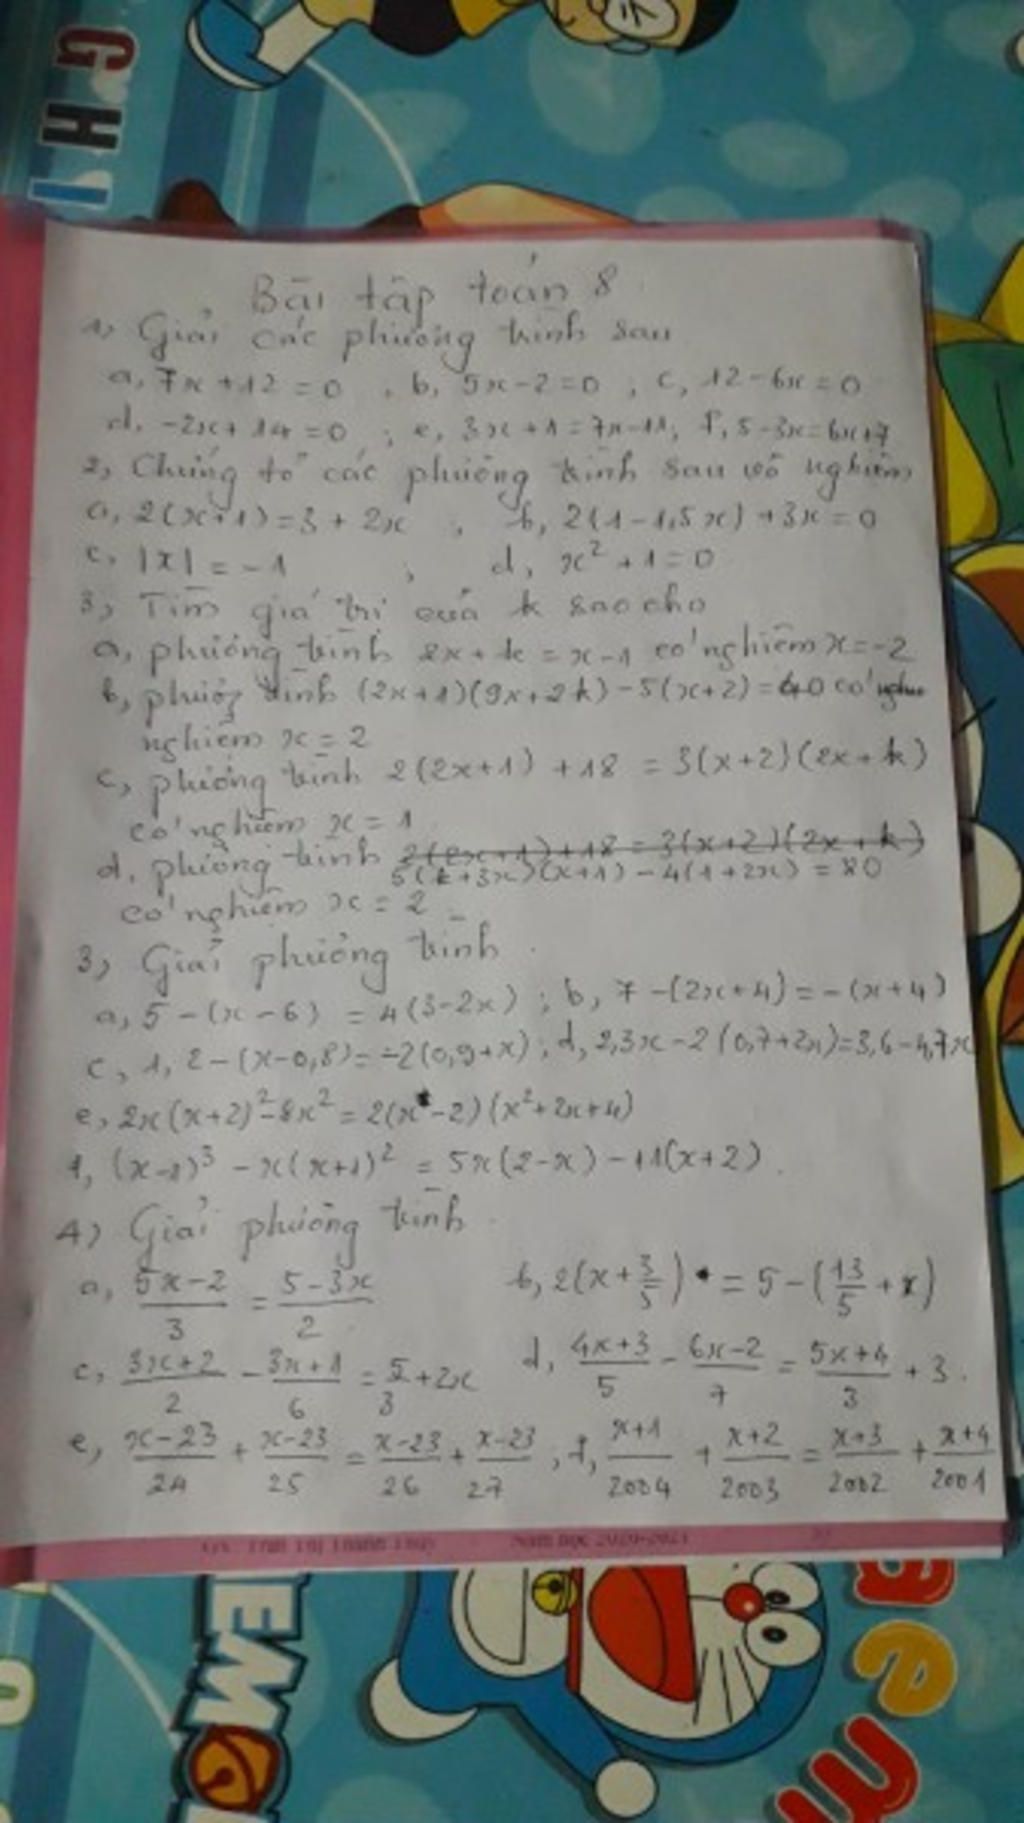 GHI
Bài tập toán 8
1, Giải các phương trình sau
a, 7x+12=0 , b, 5x-2=0 ; c, 12-6x=0
d, -2x+14=0 ; e, 3x+1=7x-11; f, 5-3x=6x+7
2, Chứng tỏ các phương trình sau vô nghiệm
a, 2(x+1)=3+2x , b, 2(1-1,5x)+3x=0
c, |x|=-1 , d, x²+1=0
3, Tìm giá trị của k sao cho
a, phương trình 2x+k=x-1 có nghiệm x=-2
b, phươg trình (2x+1)(9x+2k)-5(x+2)=40 có
nghiệm x=2
c, phương trình 2(2x+1)+18=3(x+2)(2x+k)
có nghiệm x=1
d, phương trình 2(2x+1)+18=3(x+2)(2x+k)
5(k+3x)(x+1)-4(1+2x)=80
có nghiệm x=2
3, Giải phương trình
a, 5-(x-6)=4(3-2x) ; b, 7-(2x+4)=-(x+4)
c, 1,2-(x-0,8)=-2(0,9+x); d, 2,3x-2(0,7+2x)=3,6-4,7x
e, 2x(x+2)²-8x²=2(x-2)(x²+2x+4)
f, (x-1)³-x(x+1)²=5x(2-x)-11(x+2).
4) Giải phương trình
a, (5x-2)/3=(5-3x)/2 b, 2(x+3/5)=5-(13/5+x)
c, (3x+2)/2-(3x+1)/6=5/3+2x d, (4x+3)/5-(6x-2)/7=(5x+4)/3+3.
e, (x-23)/24+(x-23)/25=(x-23)/26+(x-23)/27 ; f, (x+1)/2004+(x+2)/2003=(x+3)/2002+(x+4)/2001
Năm học 2020-2021